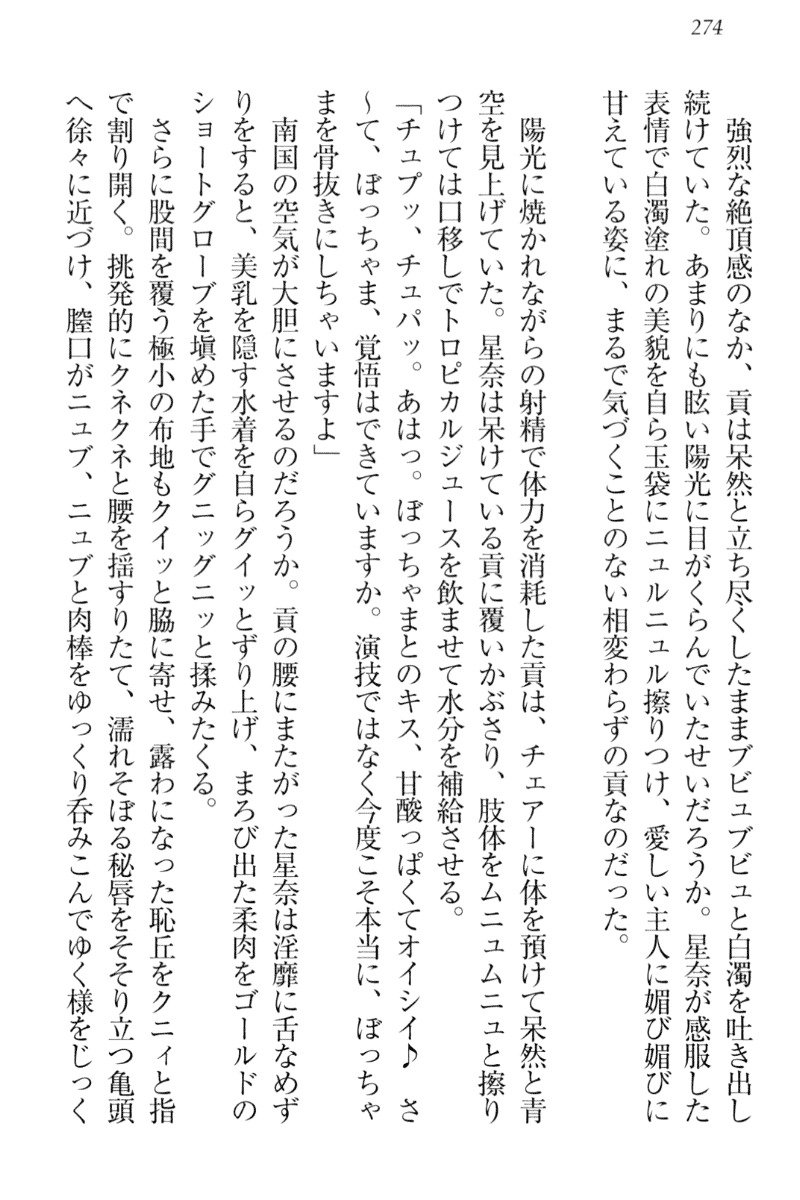 274
強烈な絶頂感のなか、貢は呆然と立ち尽くしたままブビュブビュと白濁を吐き出し
続けていた。あまりにも眩い陽光に目がくらんでいたせいだろうか。星奈が感服した
表情で白濁塗れの美貌を自ら玉袋にニュルニュル擦りつけ、愛しい主人に媚び媚びに
甘えている姿に、まるで気づくことのない相変わらずの貢なのだった。
陽光に焼かれながらの射精で体力を消耗した貢は、チェアーに体を預けて呆然と青
空を見上げていた。星奈は呆けている貢に覆いかぶさり、肢体をムニュムニュと擦り
つけては口移しでトロピカルジュースを飲ませて水分を補給させる。
「チュプッ、チュパッ。あはっ。ぼっちゃまとのキス、甘酸っぱくてオイシイ♪　さ
～て、ぼっちゃま、覚悟はできていますか。演技ではなく今度こそ本当に、ぼっちゃ
まを骨抜きにしちゃいますよ」
南国の空気が大胆にさせるのだろうか。貢の腰にまたがった星奈は淫靡に舌なめず
りをすると、美乳を隠す水着を自らグイッとずり上げ、まろび出た柔肉をゴールドの
ショートグローブを塡めた手でグニッグニッと揉みたくる。
さらに股間を覆う極小の布地もクイッと脇に寄せ、露わになった恥丘をクニィと指
で割り開く。挑発的にクネクネと腰を揺すりたて、濡れそぼる秘唇をそそり立つ亀頭
へ徐々に近づけ、膣口がニュブ、ニュブと肉棒をゆっくり呑みこんでゆく様をじっく